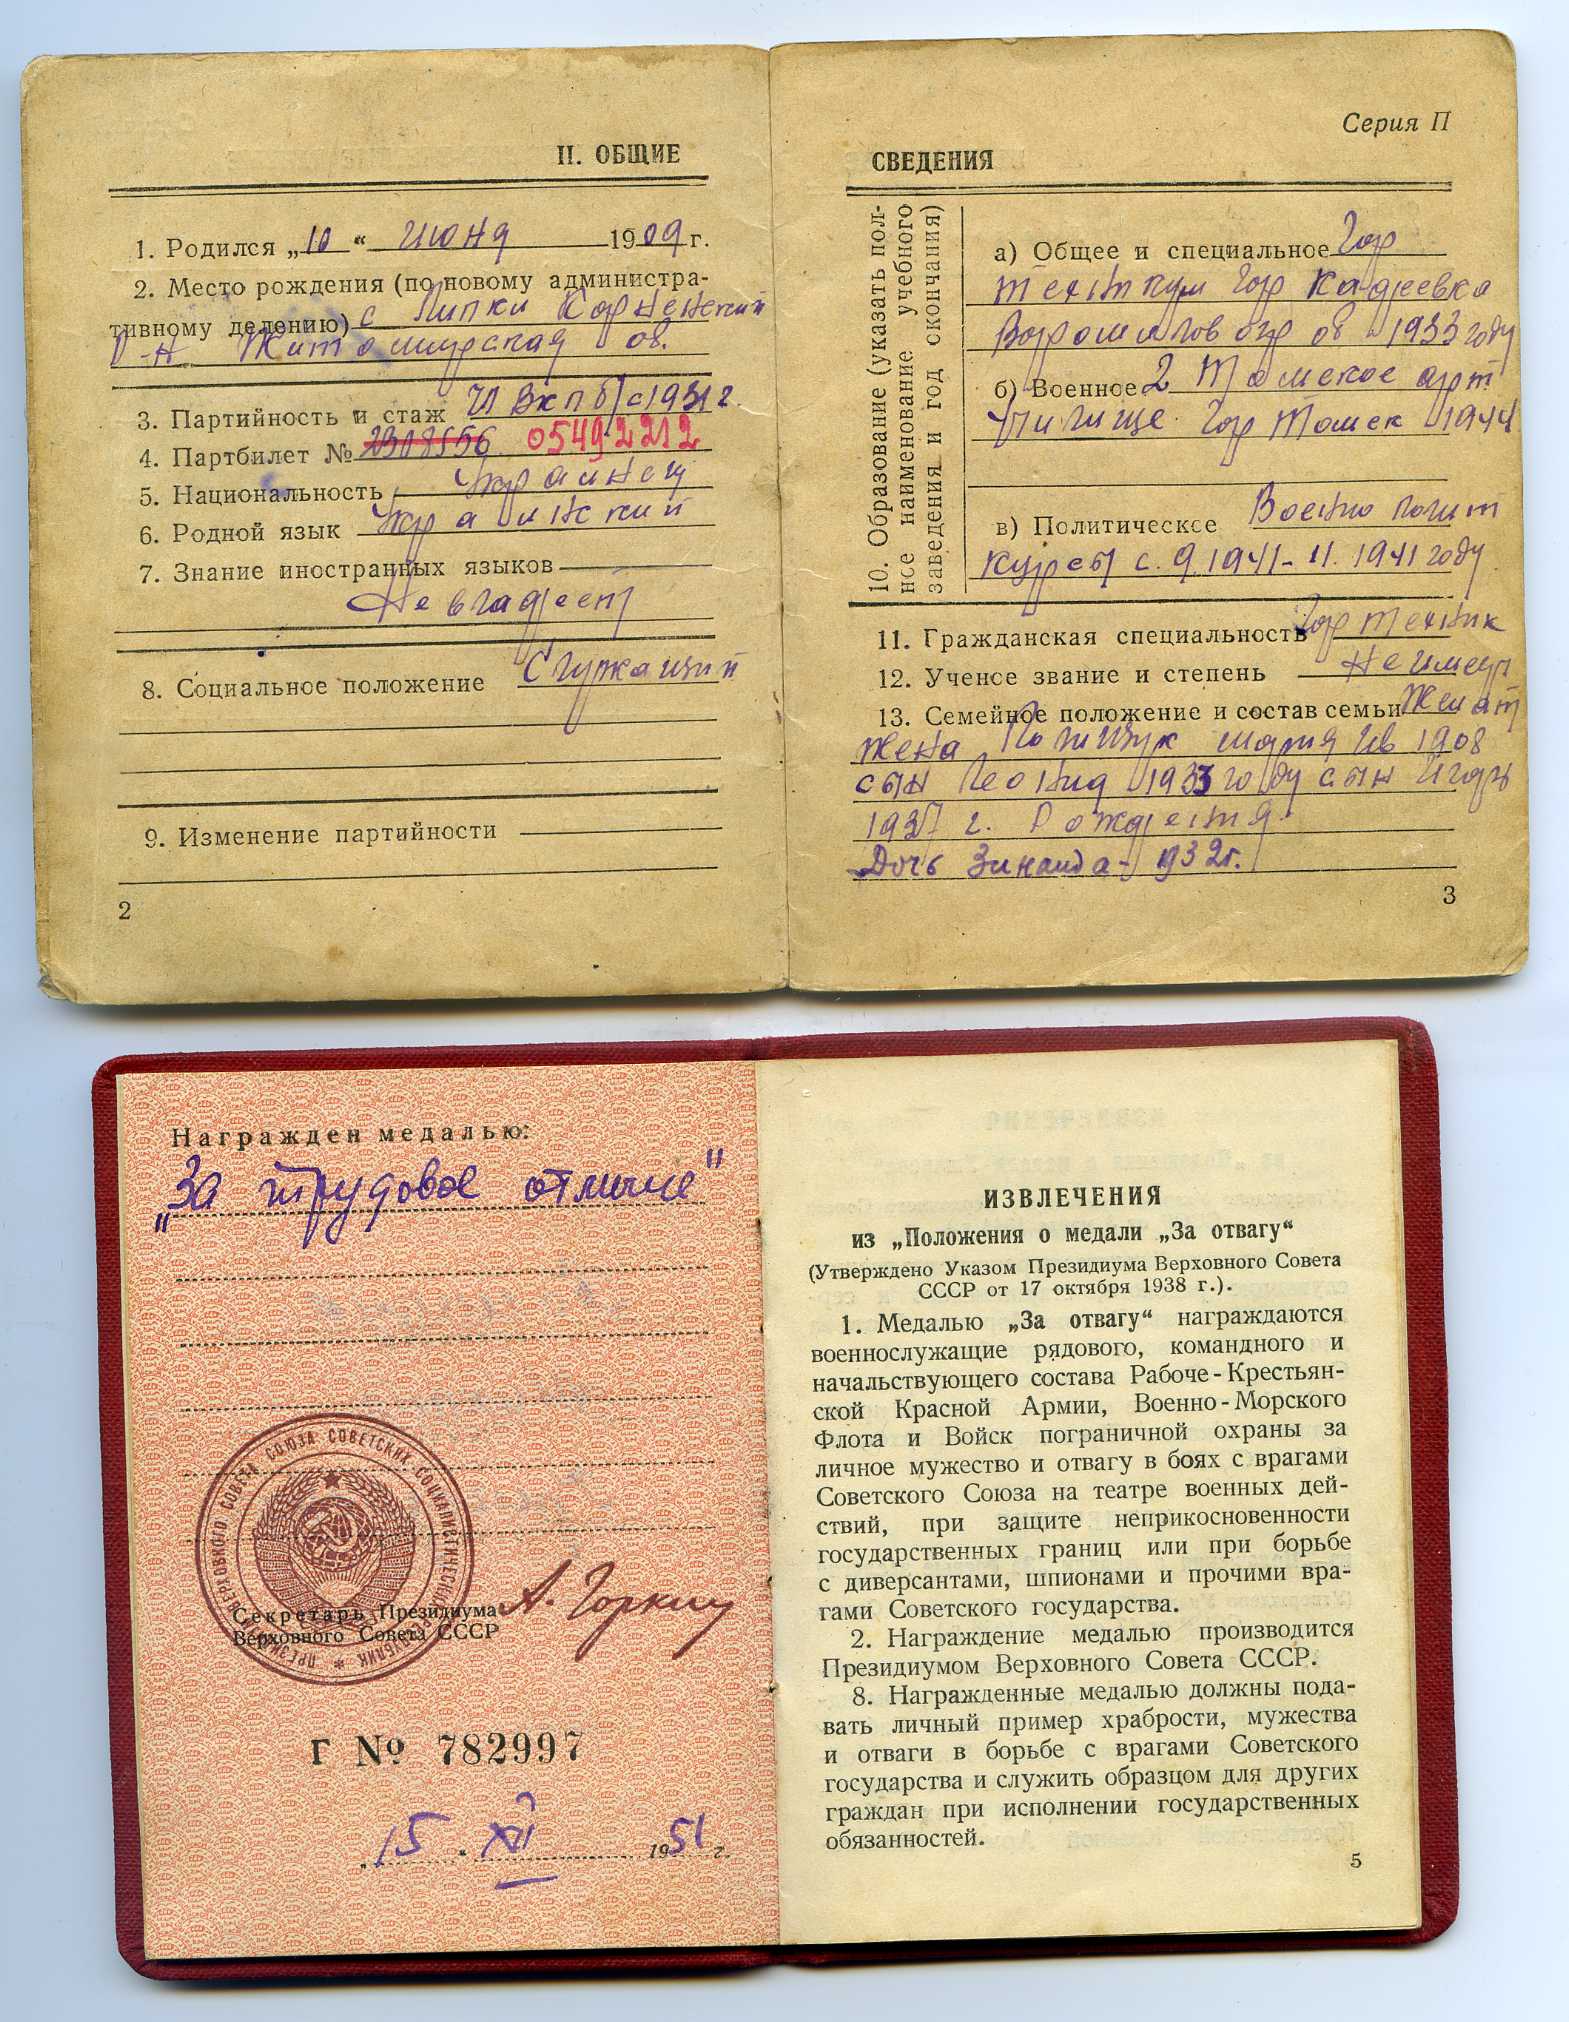 Серия П
II. ОБЩИЕ
1. Родился „10“ июня 1909 г.
2. Место рождения (по новому администра-
тивному делению) с Липки
р-н Житомирская об.
3. Партийность и стаж Чл ВКПб с 1931 г.
4. Партбилет № 2318556 05492212
5. Национальность Украинец
6. Родной язык Украинский
7. Знание иностранных языков
Не владеет
8. Социальное положение Служащий
9. Изменение партийности
2
СВЕДЕНИЯ
10. Образование (указать пол-
ное наименование учебного
заведения и год окончания)
а) Общее и специальное Гор
техникум гор Кадиевка
Ворошиловогр об 1933 году
б) Военное 2 Томское арт
училище гор Томск 1944
в) Политическое Военно полит
курсы с. 9. 1941 - 11. 1941 году
11. Гражданская специальность Гор техник
12. Ученое звание и степень Не имею
13. Семейное положение и состав семьи Женат
жена Полищук Мария Ив 1908
сын Леонид 1933 году сын Игорь
1937 г. Рождения
Дочь Зинаида - 1932г.
3
Награжден медалью:
„За трудовое отличие"
ПРЕЗИДИУМ ВЕРХОВНОГО СОВЕТА СОЮЗА СОВЕТСКИХ СОЦИАЛИСТИЧЕСКИХ РЕСПУБЛИК
Секретарь Президиума А. Горкин
Верховного Совета СССР
Г № 782997
„15“ XII 1951 г.
ИЗВЛЕЧЕНИЯ
из „Положения о медали „За отвагу“
(Утверждено Указом Президиума Верховного Совета
СССР от 17 октября 1938 г.).
1. Медалью „За отвагу“ награждаются
военнослужащие рядового, командного и
начальствующего состава Рабоче-Крестьян-
ской Красной Армии, Военно-Морского
Флота и Войск пограничной охраны за
личное мужество и отвагу в боях с врагами
Советского Союза на театре военных дей-
ствий, при защите неприкосновенности
государственных границ или при борьбе
с диверсантами, шпионами и прочими вра-
гами Советского государства.
2. Награждение медалью производится
Президиумом Верховного Совета СССР.
8. Награжденные медалью должны пода-
вать личный пример храбрости, мужества
и отваги в борьбе с врагами Советского
государства и служить образцом для других
граждан при исполнении государственных
обязанностей.
5